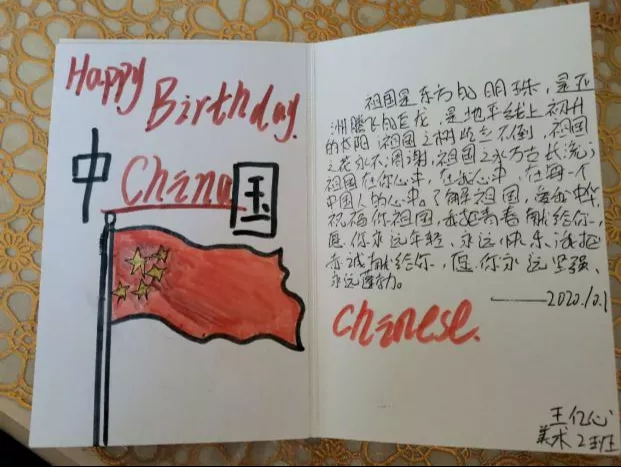 Happy
Birthday.
中 China 国
祖国是东方的明珠，是亚
洲腾飞的巨龙，是地平线上初升
的太阳，祖国之树屹立不倒，祖国
之花永不凋谢，祖国之水万古长流；
祖国在你心中，在我心中，在每一个
中国人的心中。了解祖国，爱我中华，
祝福你祖国，我把青春献给你，
愿你永远年轻、永远快乐，我把
赤诚献给你，愿你永远坚强、
永远
————2020.10.1
Chenese.
王亿心
美术2班